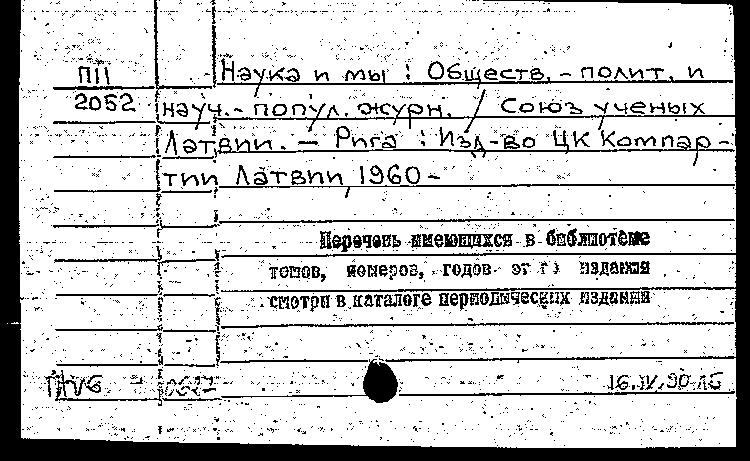 П11 Наука и мы : Обществ.-полит. и
2052 науч.-попул. журн. / Союз ученых
Латвии. — Рига : Изд-во ЦК Компар-
тии Латвии, 1960-
Перечень имеющихся в библиотеке
томов, номеров, годов этого издания
смотри в каталоге периодических изданий
16.IV.90